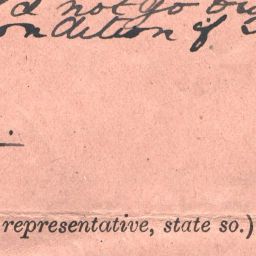 d not go ou
condition of
representative, state so.)